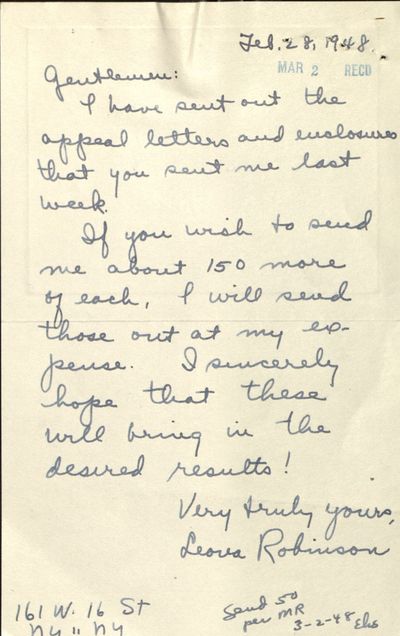 Feb. 28, 1948.
MAR 2 RECD
Gentlemen:
I have sent out the
appeal letters and enclosures
that you sent me last
week.
If you wish to send
me about 150 more
of each, I will send
those out at my ex-
pense. I sincerely
hope that these
will bring in the
desired results!
Very truly yours,
Leona Robinson
161 W. 16 St
NY 11 NY
Send 50
per MR
3-2-48